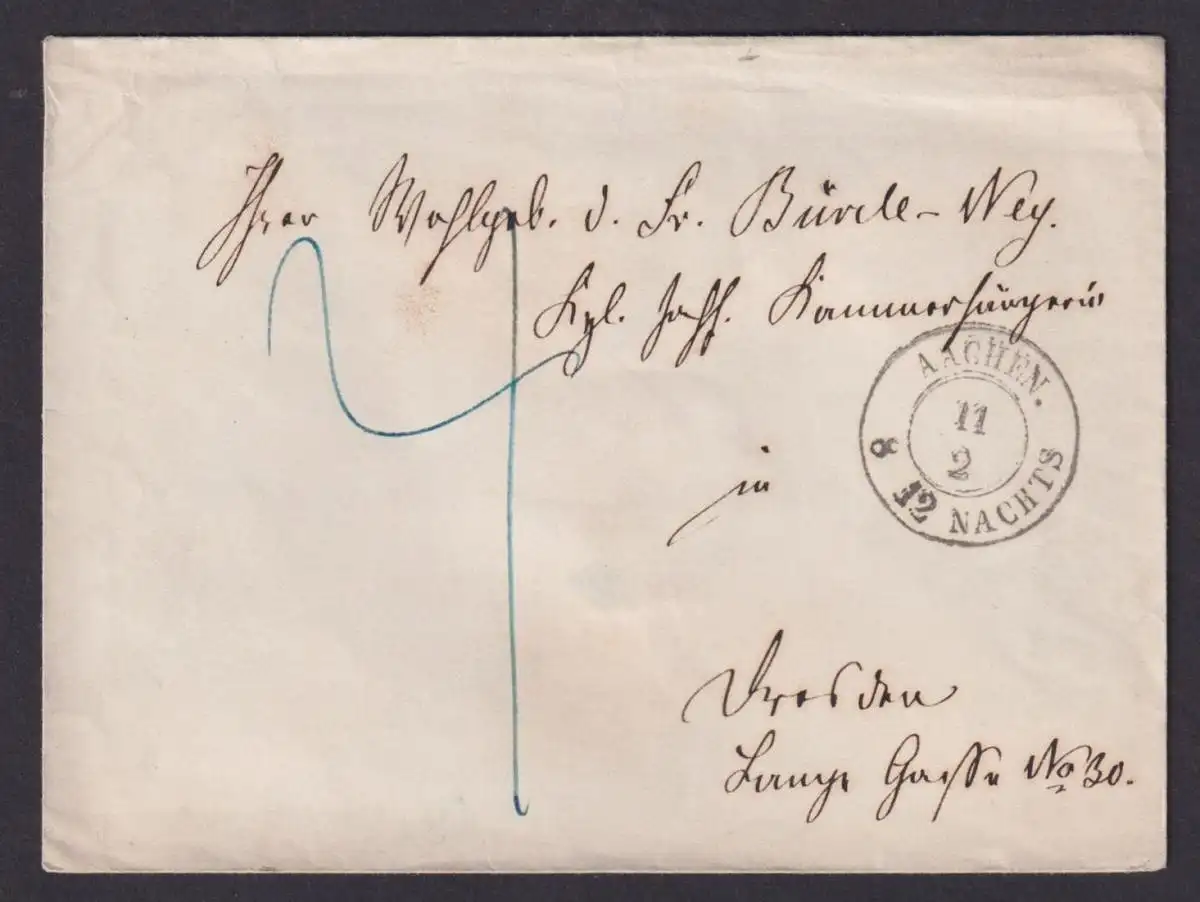 Ihrer Wohlgeb. d. Fr. Bürde-Ney.
Kgl. sächs. Kammersängerin
AACHEN.
11
2
8
12 NACHTS
in
Dresden
Lange Gasse No 30.
4